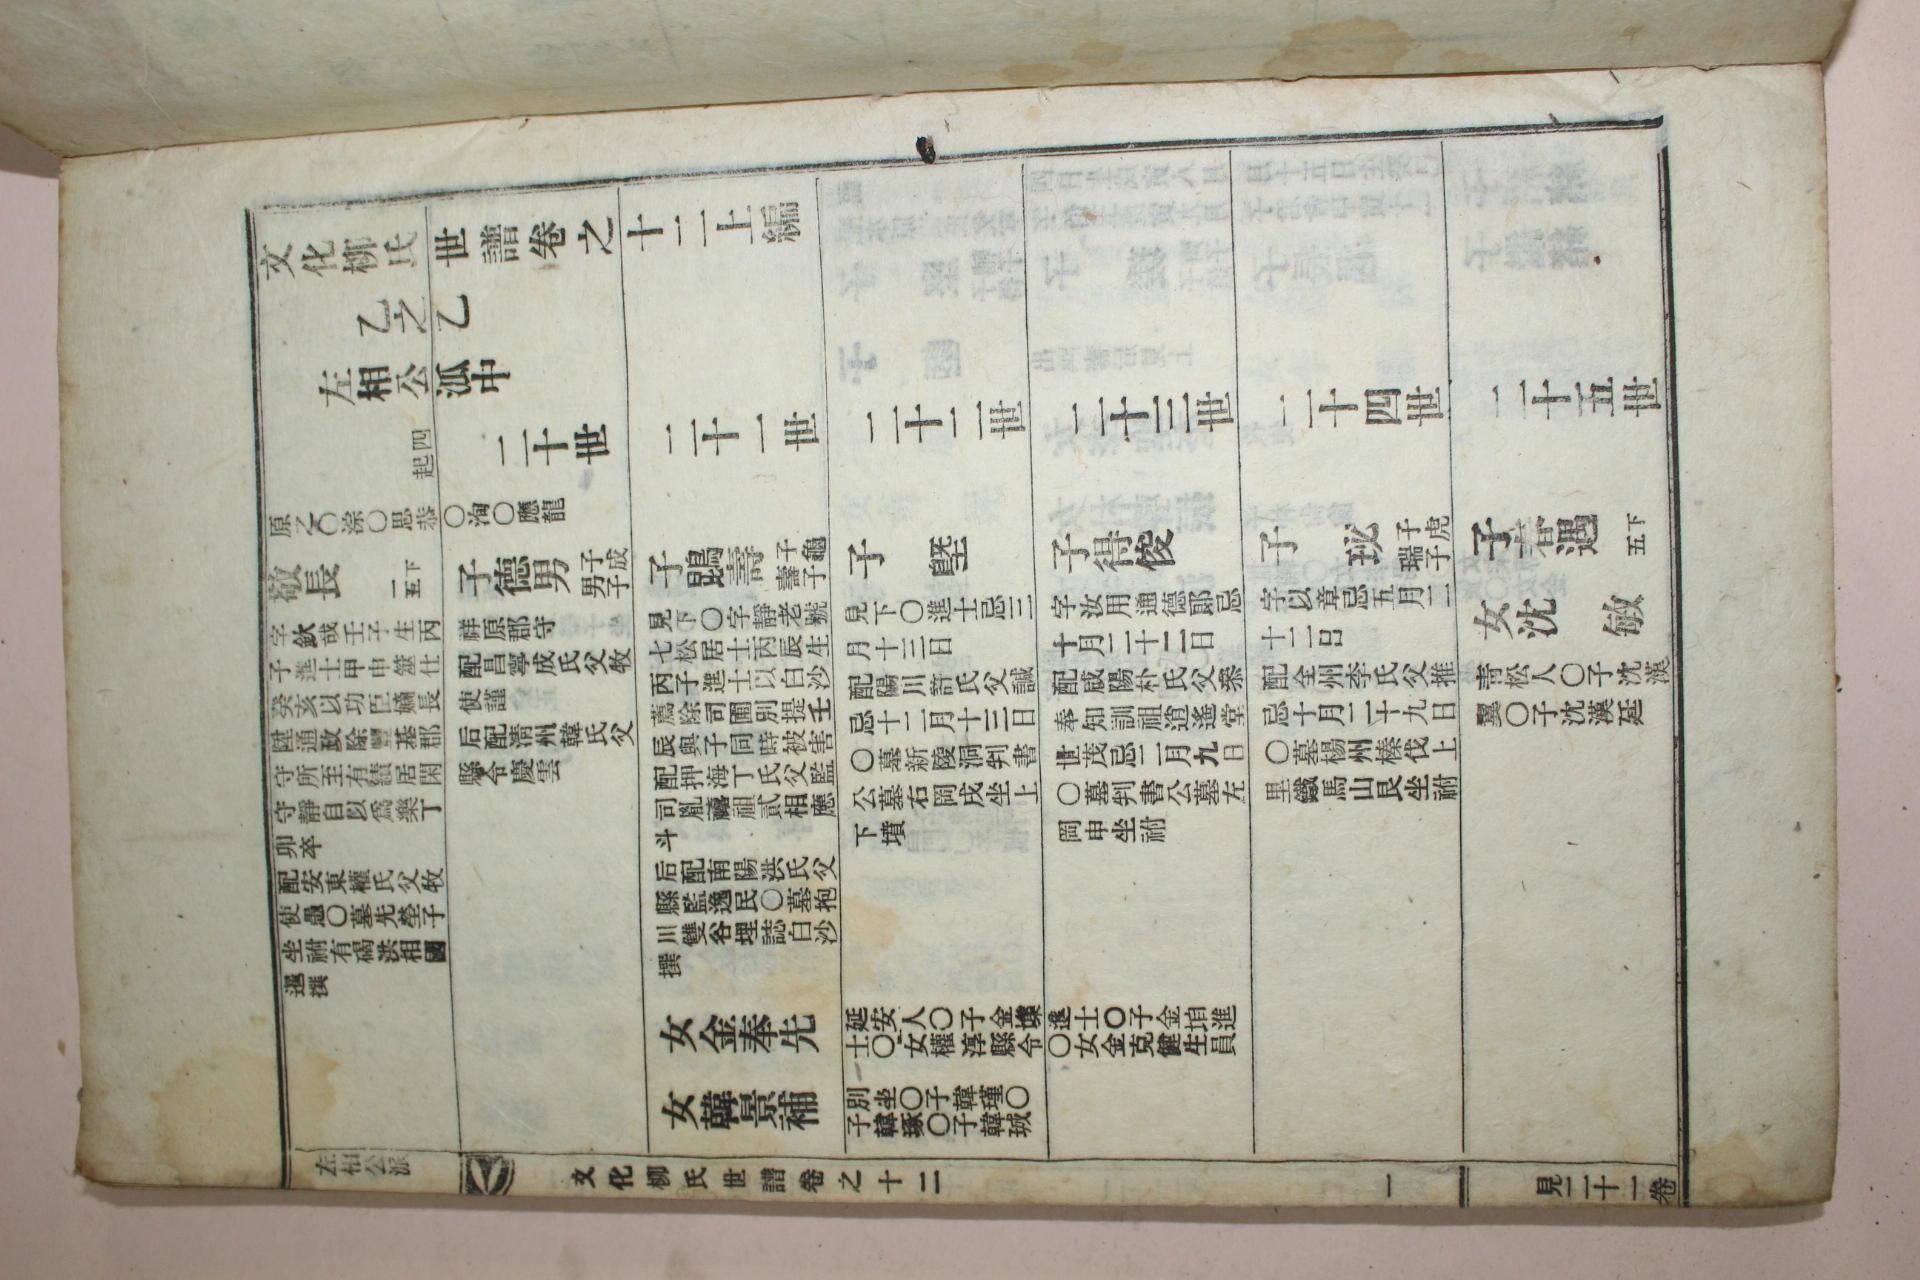 文化柳氏世譜卷之十二上編
乙之乙
左相公派中
起四
二十世
二十一世
二十二世
二十三世
二十四世
二十五世
原之〇淙〇思恭〇洵〇應龍
敬長
一五下
字欽哉壬子生丙
子進士甲申筮仕
癸亥以功臣嫡長
陞通政除豐基郡
守所至有績居閑
守靜自以爲樂丁
卯卒
配安東權氏父牧
使愚〇墓先塋子
坐祔有碣洪相國
暹撰
子德男
男子
子成
祥原郡守
配昌寧成氏父牧
使謹
后配淸州韓氏父
縣令慶雲
子鵾壽
壽子
子龜
見下〇字靜老號
七松居士丙辰生
丙子進士以白沙
薦除司圃別提壬
辰與子同時被害
配押海丁氏父監
司胤禧祖貳相應
斗
后配南陽洪氏父
縣監逸民〇墓抱
川雙谷埋誌白沙
撰
女金奉先
女韓景補
子塈
見下〇進士忌三
月十三日
配陽川許氏父誠
忌十二月十三日
〇墓新陵洞判書
公墓右岡戌坐上
下墳
延安人〇子金㙉進士〇子金垍進
士〇女權淳縣令〇女金克健生員
子別坐〇子韓瑾〇
子韓琢〇子韓珹
子得俊
字汝用通德郞忌
十月二十二日
配咸陽朴氏父崇
奉知訓祖逍遙堂
世茂忌二月九日
〇墓判書公墓左
岡申坐祔
子珌
子虎
瑞子
字以章忌五月二
十二日
配全州李氏父推
忌十月二十九日
〇墓楊州榛伐上
里鐵馬山艮坐祔
子春遇
五下
女沈敏
靑松人〇子沈漢
翼〇子沈漢廷
左相公派
文化柳氏世譜卷之十二
一
見二十一卷